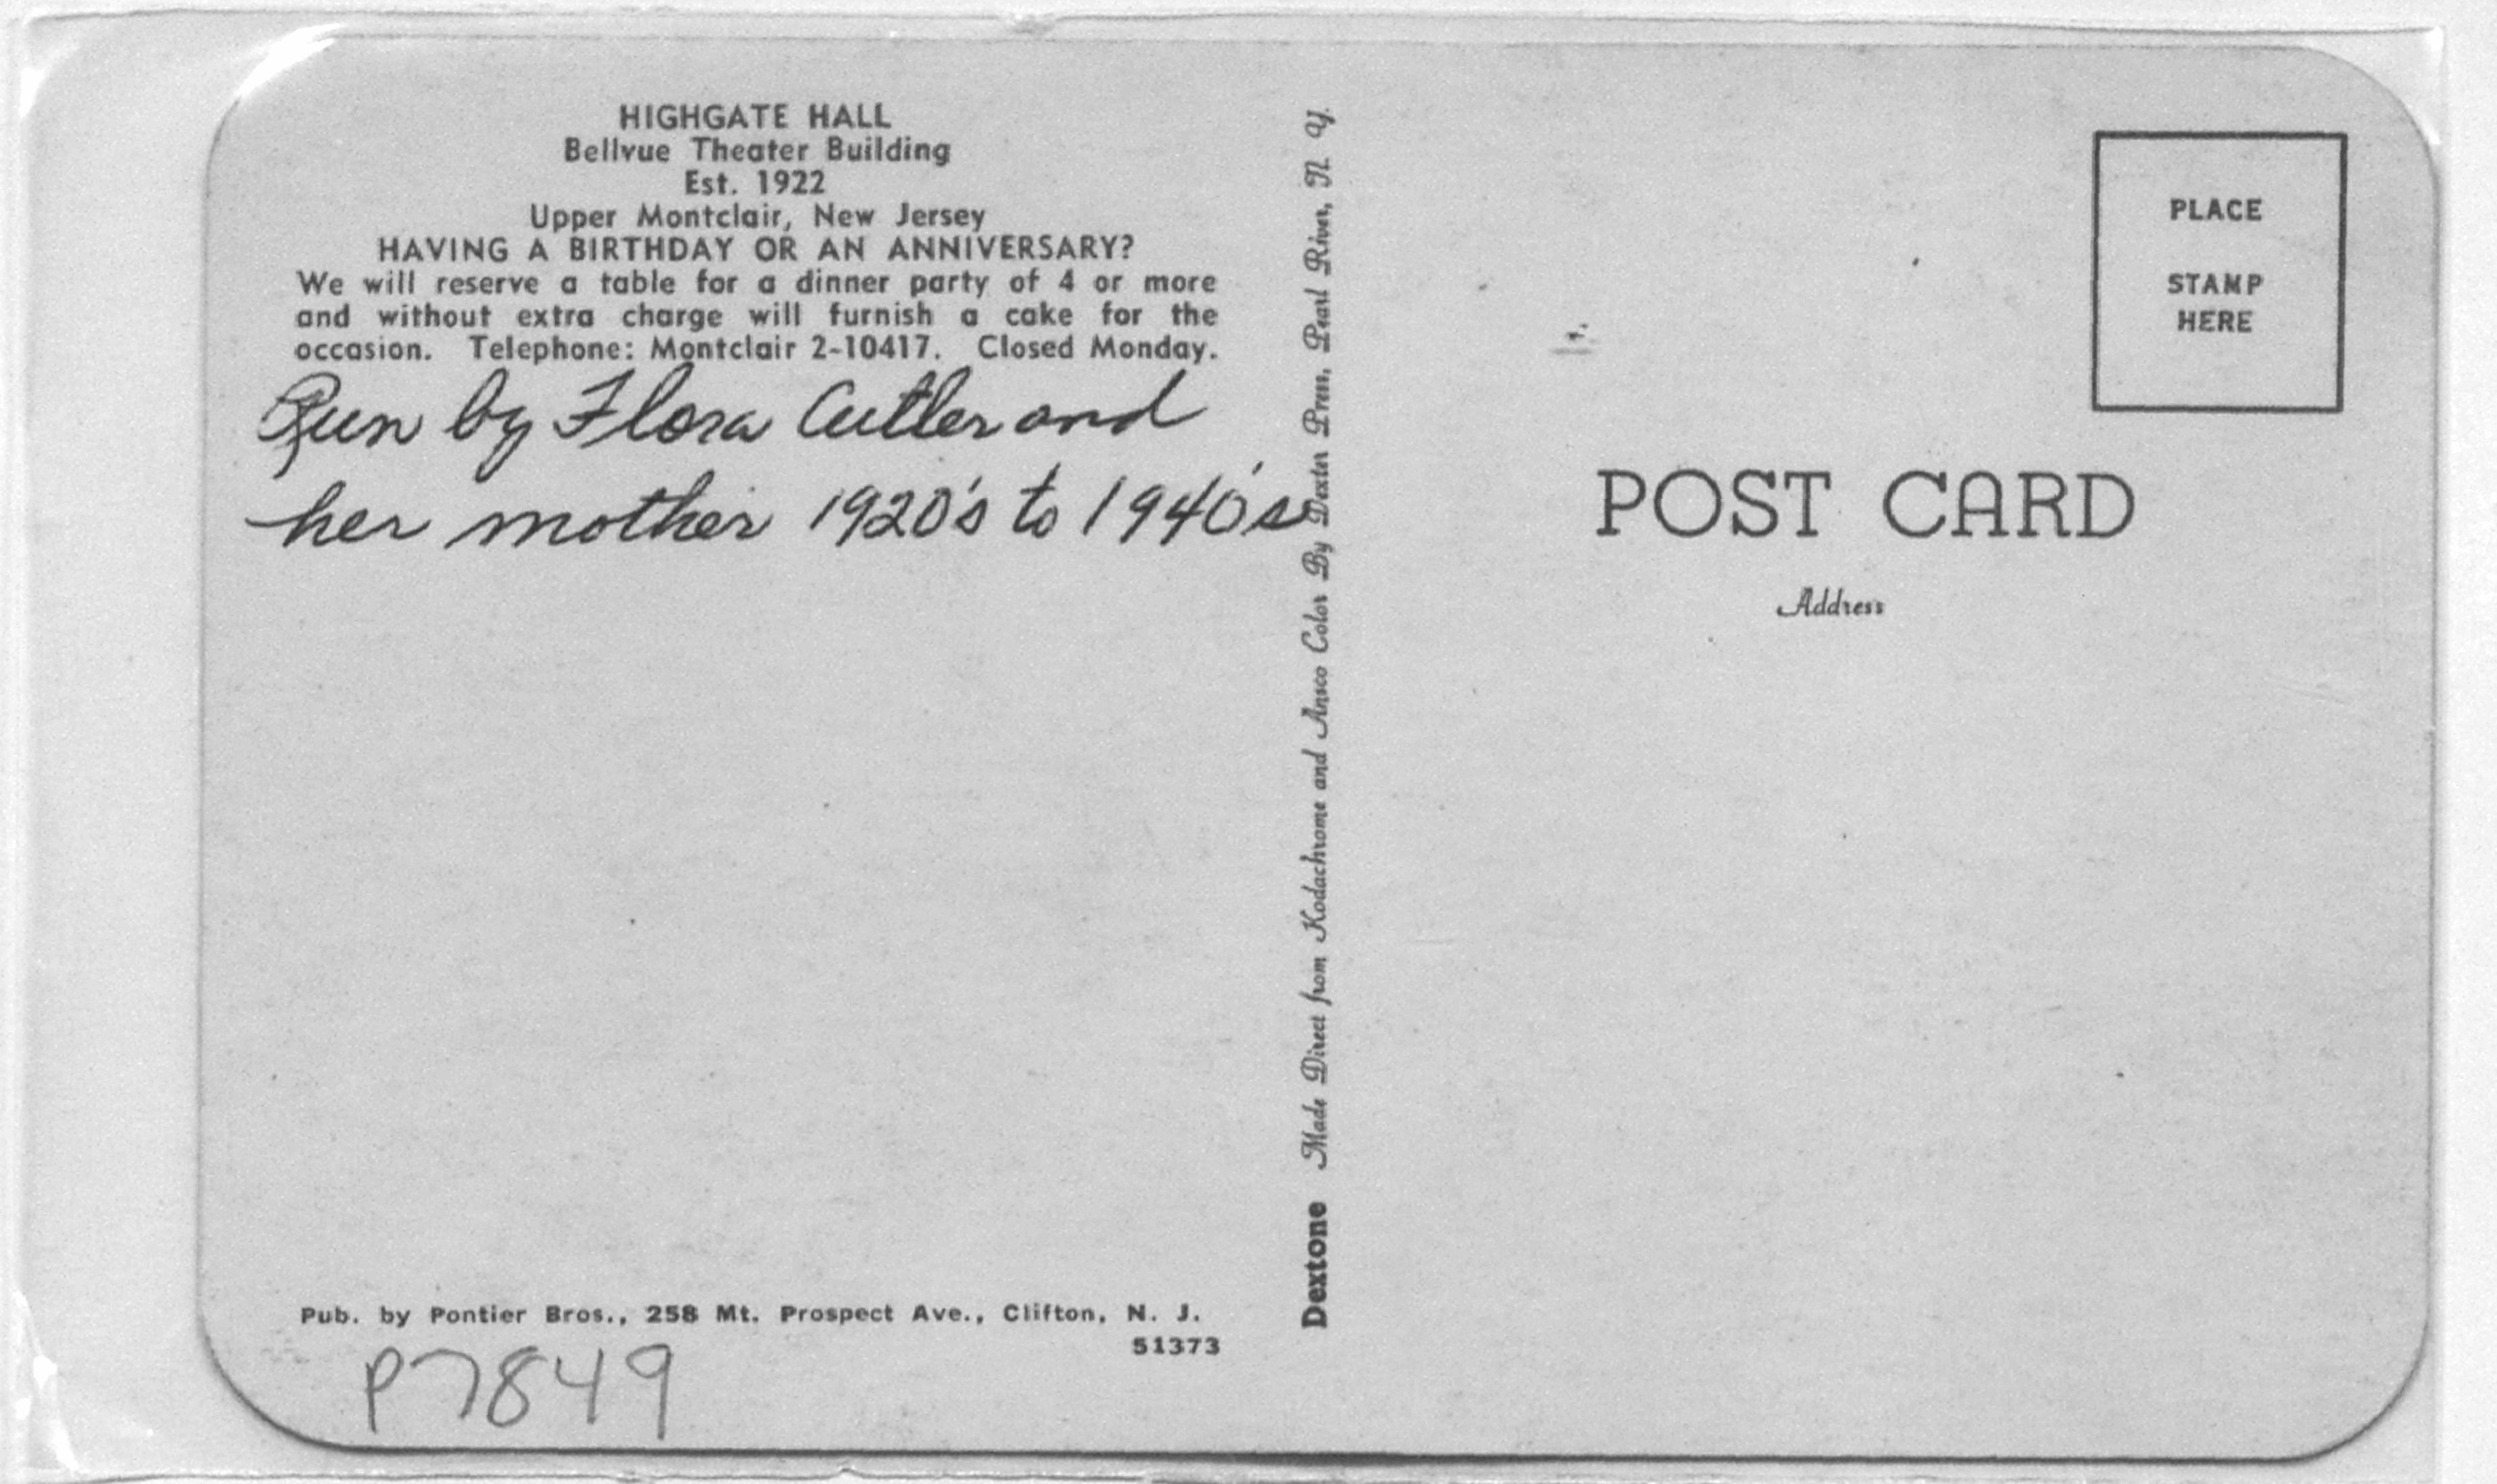 HIGHGATE HALL
Bellvue Theater Building
Est. 1922
Upper Montclair, New Jersey
HAVING A BIRTHDAY OR AN ANNIVERSARY?
We will reserve a table for a dinner party of 4 or more
and without extra charge will furnish a cake for the
occasion. Telephone: Montclair 2-10417. Closed Monday.
Run by Flora Cutler and
her mother 1920's to 1940's
Pub. by Pontier Bros., 258 Mt. Prospect Ave., Clifton, N. J.
51373
P7849
Dextone Made Direct from Kodachrome and Ansco Color By Dexter Press, Pearl River, N. Y.
PLACE
STAMP
HERE
POST CARD
Address